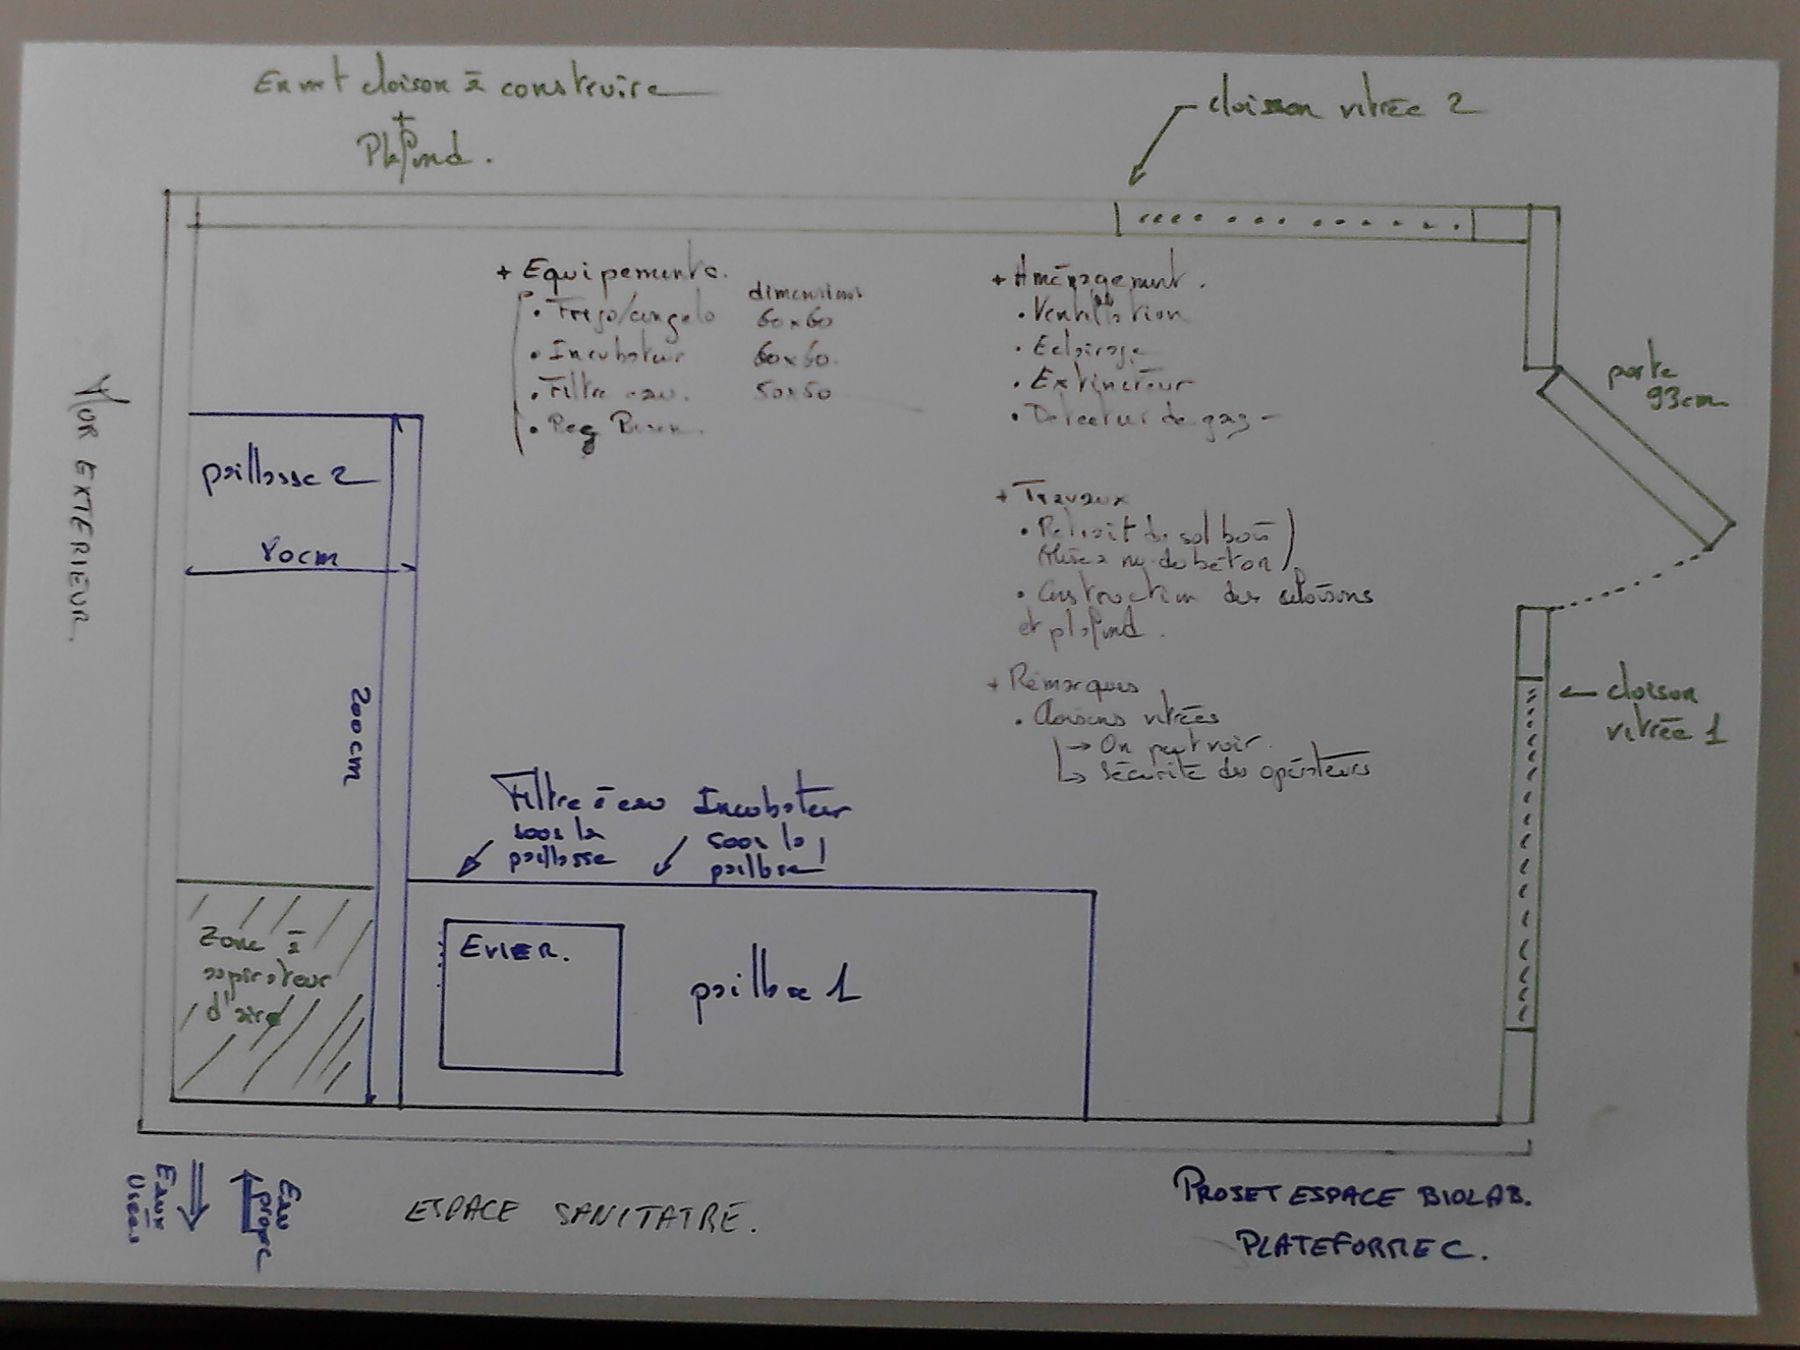 En vert cloison à construire
+
Plafond.
cloison vitrée 2
+ Equipements.
dimensions
• Frigo/congelo 60x60
• Incubateur 60x60
• Filtre eau. 50x50
• Bec
+ Aménagement.
• Ventilation
• Eclairage
• Extincteur
• Detecteur de gaz
porte
93cm
MUR EXTERIEUR.
paillasse 2
80cm
200cm
+ Travaux
• Retrait du sol bois
(Mise à nu du béton)
• Construction des cloisons
et plafond.
+ Remarques
• Cloisons vitrées
→ On peut voir
↳ Sécurité des opérateurs
← cloison
vitrée 1
Filtre à eau
sous la
paillasse
Incubateur
sous la
paillasse
Zone à
aspirateur
d'air
EVIER.
paillasse 1
Eaux
Usées
Eau
propre
ESPACE SANITAIRE.
PROJET ESPACE BIOLAB.
PLATEFORME C.